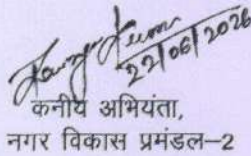 22/06/2026
कनीय अभियंता,
नगर विकास प्रमंडल–2